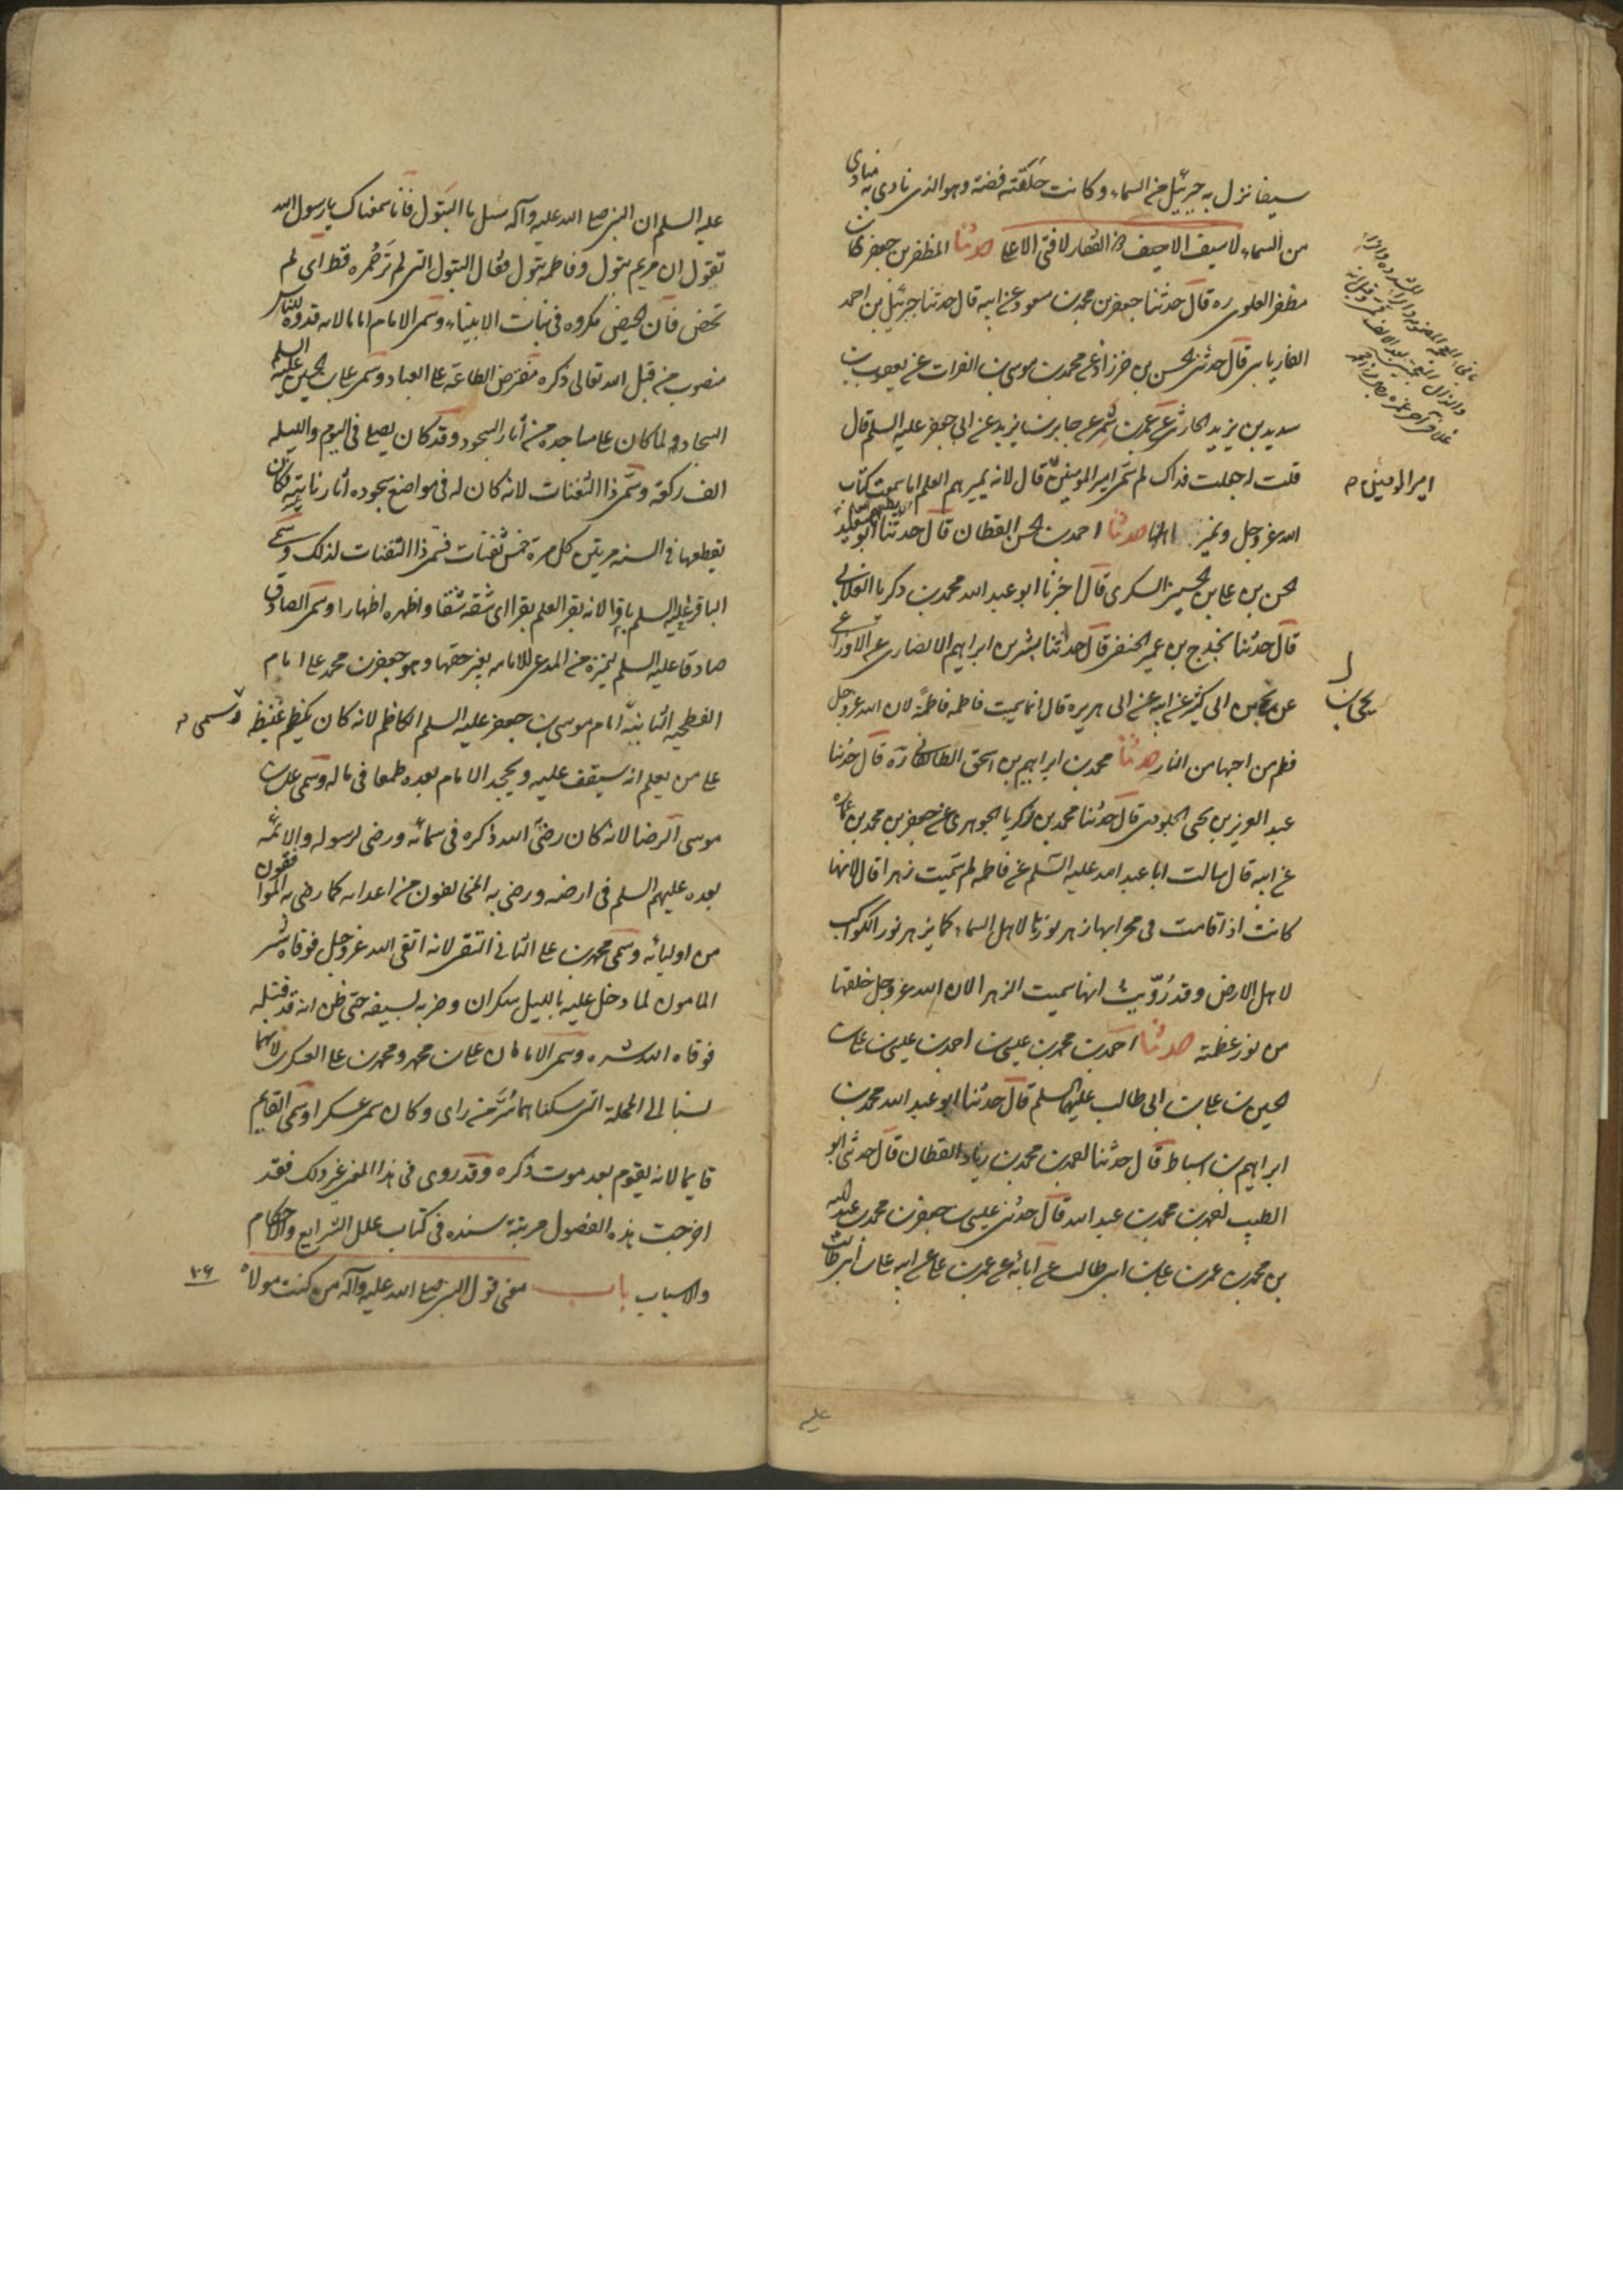 سيفا نزل به جبرئيل من السماء وكانت حلقته فضة وهو الذى نادى به مناد
من السماء لاسيف الا سيف ذو الفقار لا فتى الا على حدثنا المظفر بن جعفر بن
مظفر العلوى ره قال حدثنا جعفر بن محمد بن مسعود عن ابيه قال حدثنا جبرئيل بن احمد
الفاريابى قال حدثنى الحسن بن خرزاذ عن محمد بن موسى بن الفرات عن يعقوب بن
سويد بن يزيد الحارثى عن عمرو بن شمر عن جابر بن يزيد عن ابى جعفر عليه السلم قال
قلت له جعلت فداك لم سمى امير المومنين قال لانه يميرهم العلم اما سمعت كتاب
امير المومنين
الله عز وجل ونمير اهلنا حدثنا احمد بن الحسن القطان قال حدثنا ابو سعيد
الحسن بن على بن الحسين السكرى قال اخبرنا ابو عبد الله محمد بن زكريا الغلابى
قال حدثنا مخدج بن عمير الحنفى قال حدثنا بشر بن ابراهيم الانصارى عن الاوزاعى
عن يحيى بن ابى كثير عن ابيه عن ابى هريره قال انما سميت فاطمه فاطمة لان الله عز وجل
يحيى بن
فطم من احبها من النار حدثنا محمد بن ابراهيم بن اسحق الطالقانى ره قال حدثنا
عبد العزيز بن يحيى الجلودى قال حدثنا محمد بن زكريا الجوهرى عن جعفر بن محمد بن عماره
عن ابيه قال سالت ابا عبد الله عليه السلم عن فاطمه لم سميت زهرا قال لانها
كانت اذا قامت فى محرابها زهر نورها لاهل السماء كما يزهر نور الكواكب
لاهل الارض وقد روّيت انها سميت الزهرا لان الله عز وجل خلقها
من نور عظمته حدثنا احمد بن محمد بن عيسى بن احمد بن عيسى بن على بن
الحسين بن على بن ابى طالب عليهم السلم قال حدثنا ابو عبد الله محمد بن
ابراهيم بن اسباط قال حدثنا احمد بن محمد بن زياد القطان قال حدثنى ابو
الطيب احمد بن محمد بن عبد الله قال حدثنى عيسى بن جعفر بن محمد بن عبد الله
بن محمد بن عمر بن على بن ابى طالب عن آبائه عن عمر بن على عن ابيه على بن ابى طالب
عليه
عليه السلم ان النبى صلى الله عليه وآله سئل ما البتول فانا سمعناك يا رسول الله
تقول ان مريم بتول وفاطمه بتول فقال البتول التى لم تر حمره قط اى لم
تحض فان الحيض مكروه فى بنات الانبياء وسمى الامام اماما لانه قدوة للناس
منصوب من قبل الله تعالى ذكره مفترض الطاعة على العباد وسمى على بن الحسين عليه السلم
السجاد لما كان على مساجده من آثار السجود وقد كان يصلى فى اليوم والليله
الف ركعة وسمى ذا الثفنات لانه كان له فى مواضع سجوده آثار ناتية فكان
يقطعها فى السنه مرتين كل مرة خمس ثفنات فسمى ذا الثفنات لذلك وسمى
الباقر عليه السلم باقرا لانه بقر العلم بقرا اى شقه شقا واظهره اظهارا وسمى الصادق
صادقا عليه السلم ليتميز من المدعى للامامه بغير حقها وهو جعفر بن محمد على امام
الفطحيه الثانية وسمى موسى بن جعفر عليه السلم الكاظم لانه كان يكظم غيظه
على من يعلم انه سيقف عليه ويجحد الامام بعده طمعا فى ماله وسمى على بن
موسى الرضا لانه كان رضى الله ذكره فى سمائه ورضى لرسوله والائمّه
بعده عليهم السلم فى ارضه ورضى به المخالفون من اعدائه كما رضى به الموافقون
من اوليائه وسمى محمد بن على الثانى التقى لانه اتقى الله عز وجل فوقاه شر
المامون لما دخل عليه بالليل سكران وضربه بسيفه حتى ظن انه قد قتله
فوقاه الله شره وسمى الامامان على بن محمد و محمد بن على العسكرى لانهما
نسبا الى المحلة التى سكناهما بسر من راى وكان تسمى عسكرا وسمى القايم
قايما لانه يقوم بعد موت ذكره وقد روى فى هذا المعنى غير ذلك فقد
اخرجت هذه الفصول مرتبة مسنده فى كتاب علل الشرايع والاحكام
والاسباب باب معنى قول النبى صلى الله عليه وآله من كنت مولاه